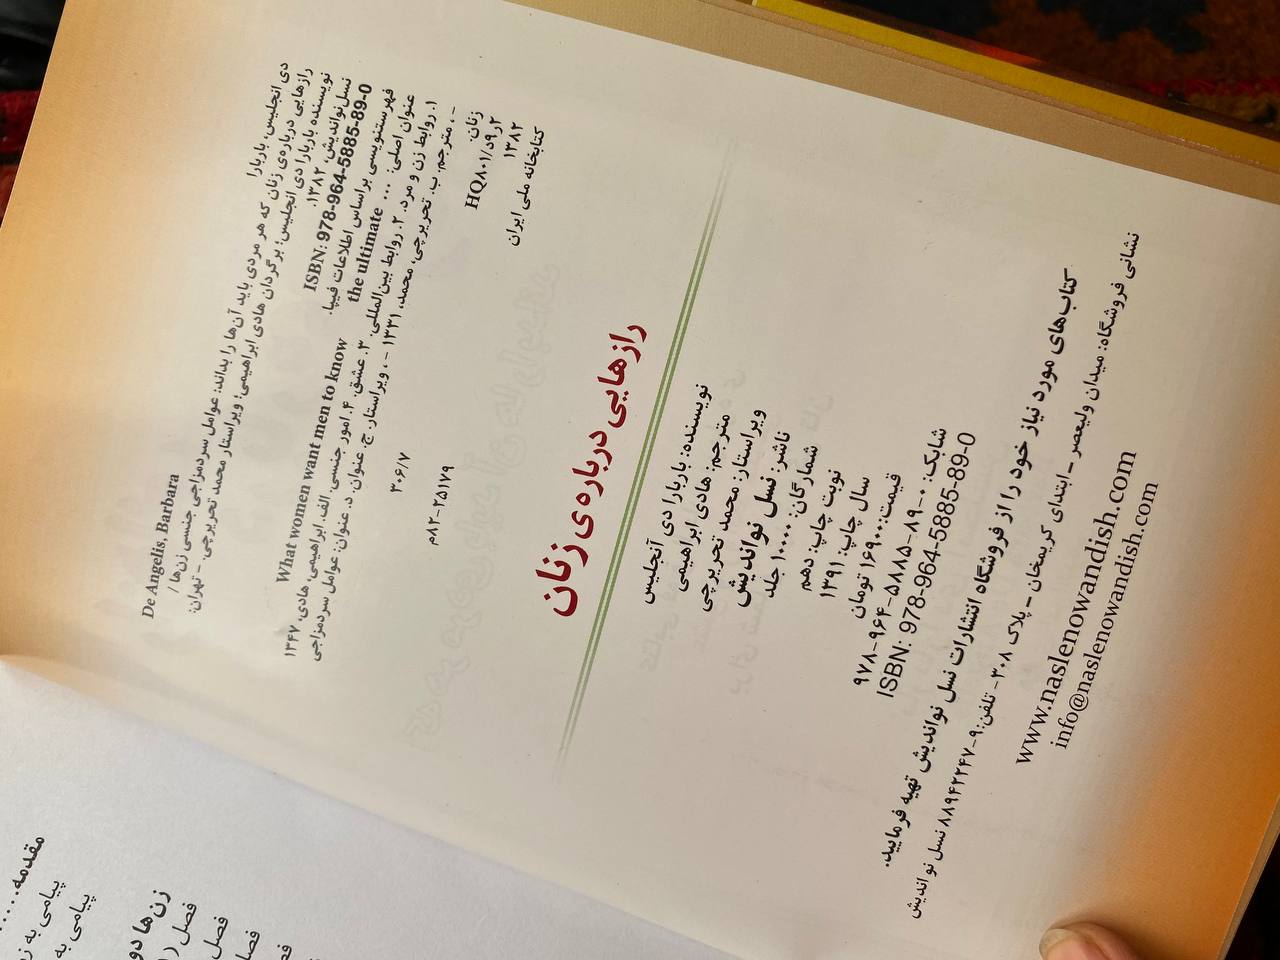 دی آنجلیس، باربارا
De Angelis, Barbara
رازهایی درباره‌ی زنان که هر مردی باید آن‌ها را بداند: عوامل سردمزاجی جنسی زن‌ها /
نویسنده باربارا دی آنجلیس؛ برگردان هادی ابراهیمی؛ ویراستار محمد تحریرچی. - تهران:
نسل‌نواندیش، ۱۳۸۲.
ISBN: 978-964-5885-89-0
فهرستنویسی براساس اطلاعات فیپا.
عنوان اصلی: ... What women want men to know the ultimate
۱. روابط زن و مرد. ۲. روابط بین‌المللی. ۳. عشق. ۴. امور جنسی. الف. ابراهیمی، هادی، ۱۳۴۷
- ، مترجم. ب. تحریرچی، محمد، ۱۳۳۱ - ، ویراستار. ج. عنوان. د. عنوان: عوامل سردمزاجی
زنان.
۳۰۶/۷
۲ر۹د/HQ۸۰۱
۱۳۸۲
م۸۲-۲۵۱۷۹
کتابخانه ملی ایران
رازهایی درباره‌ی زنان
نویسنده: باربارا دی آنجلیس
مترجم: هادی ابراهیمی
ویراستار: محمد تحریرچی
ناشر: نسل نواندیش
شمارگان: ۱۰۰۰۰ جلد
نوبت چاپ: دهم
سال چاپ: ۱۳۹۱
قیمت: ۱۶۹۰۰ تومان
شابک: ۰-۸۹-۵۸۸۵-۹۶۴-۹۷۸
ISBN: 978-964-5885-89-0
کتاب‌های مورد نیاز خود را از فروشگاه انتشارات نسل نواندیش تهیه فرمایید.
نشانی فروشگاه: میدان ولیعصر - ابتدای کریمخان - پلاک ۳۰۸ - تلفن: ۹-۸۸۹۴۲۲۴۷ نسل نواندیش
www.naslenowandish.com
info@naslenowandish.com
مقدمه.....
پیامی به
پیامی به
زن‌ها دو
فصل (۱
فصل
فصل